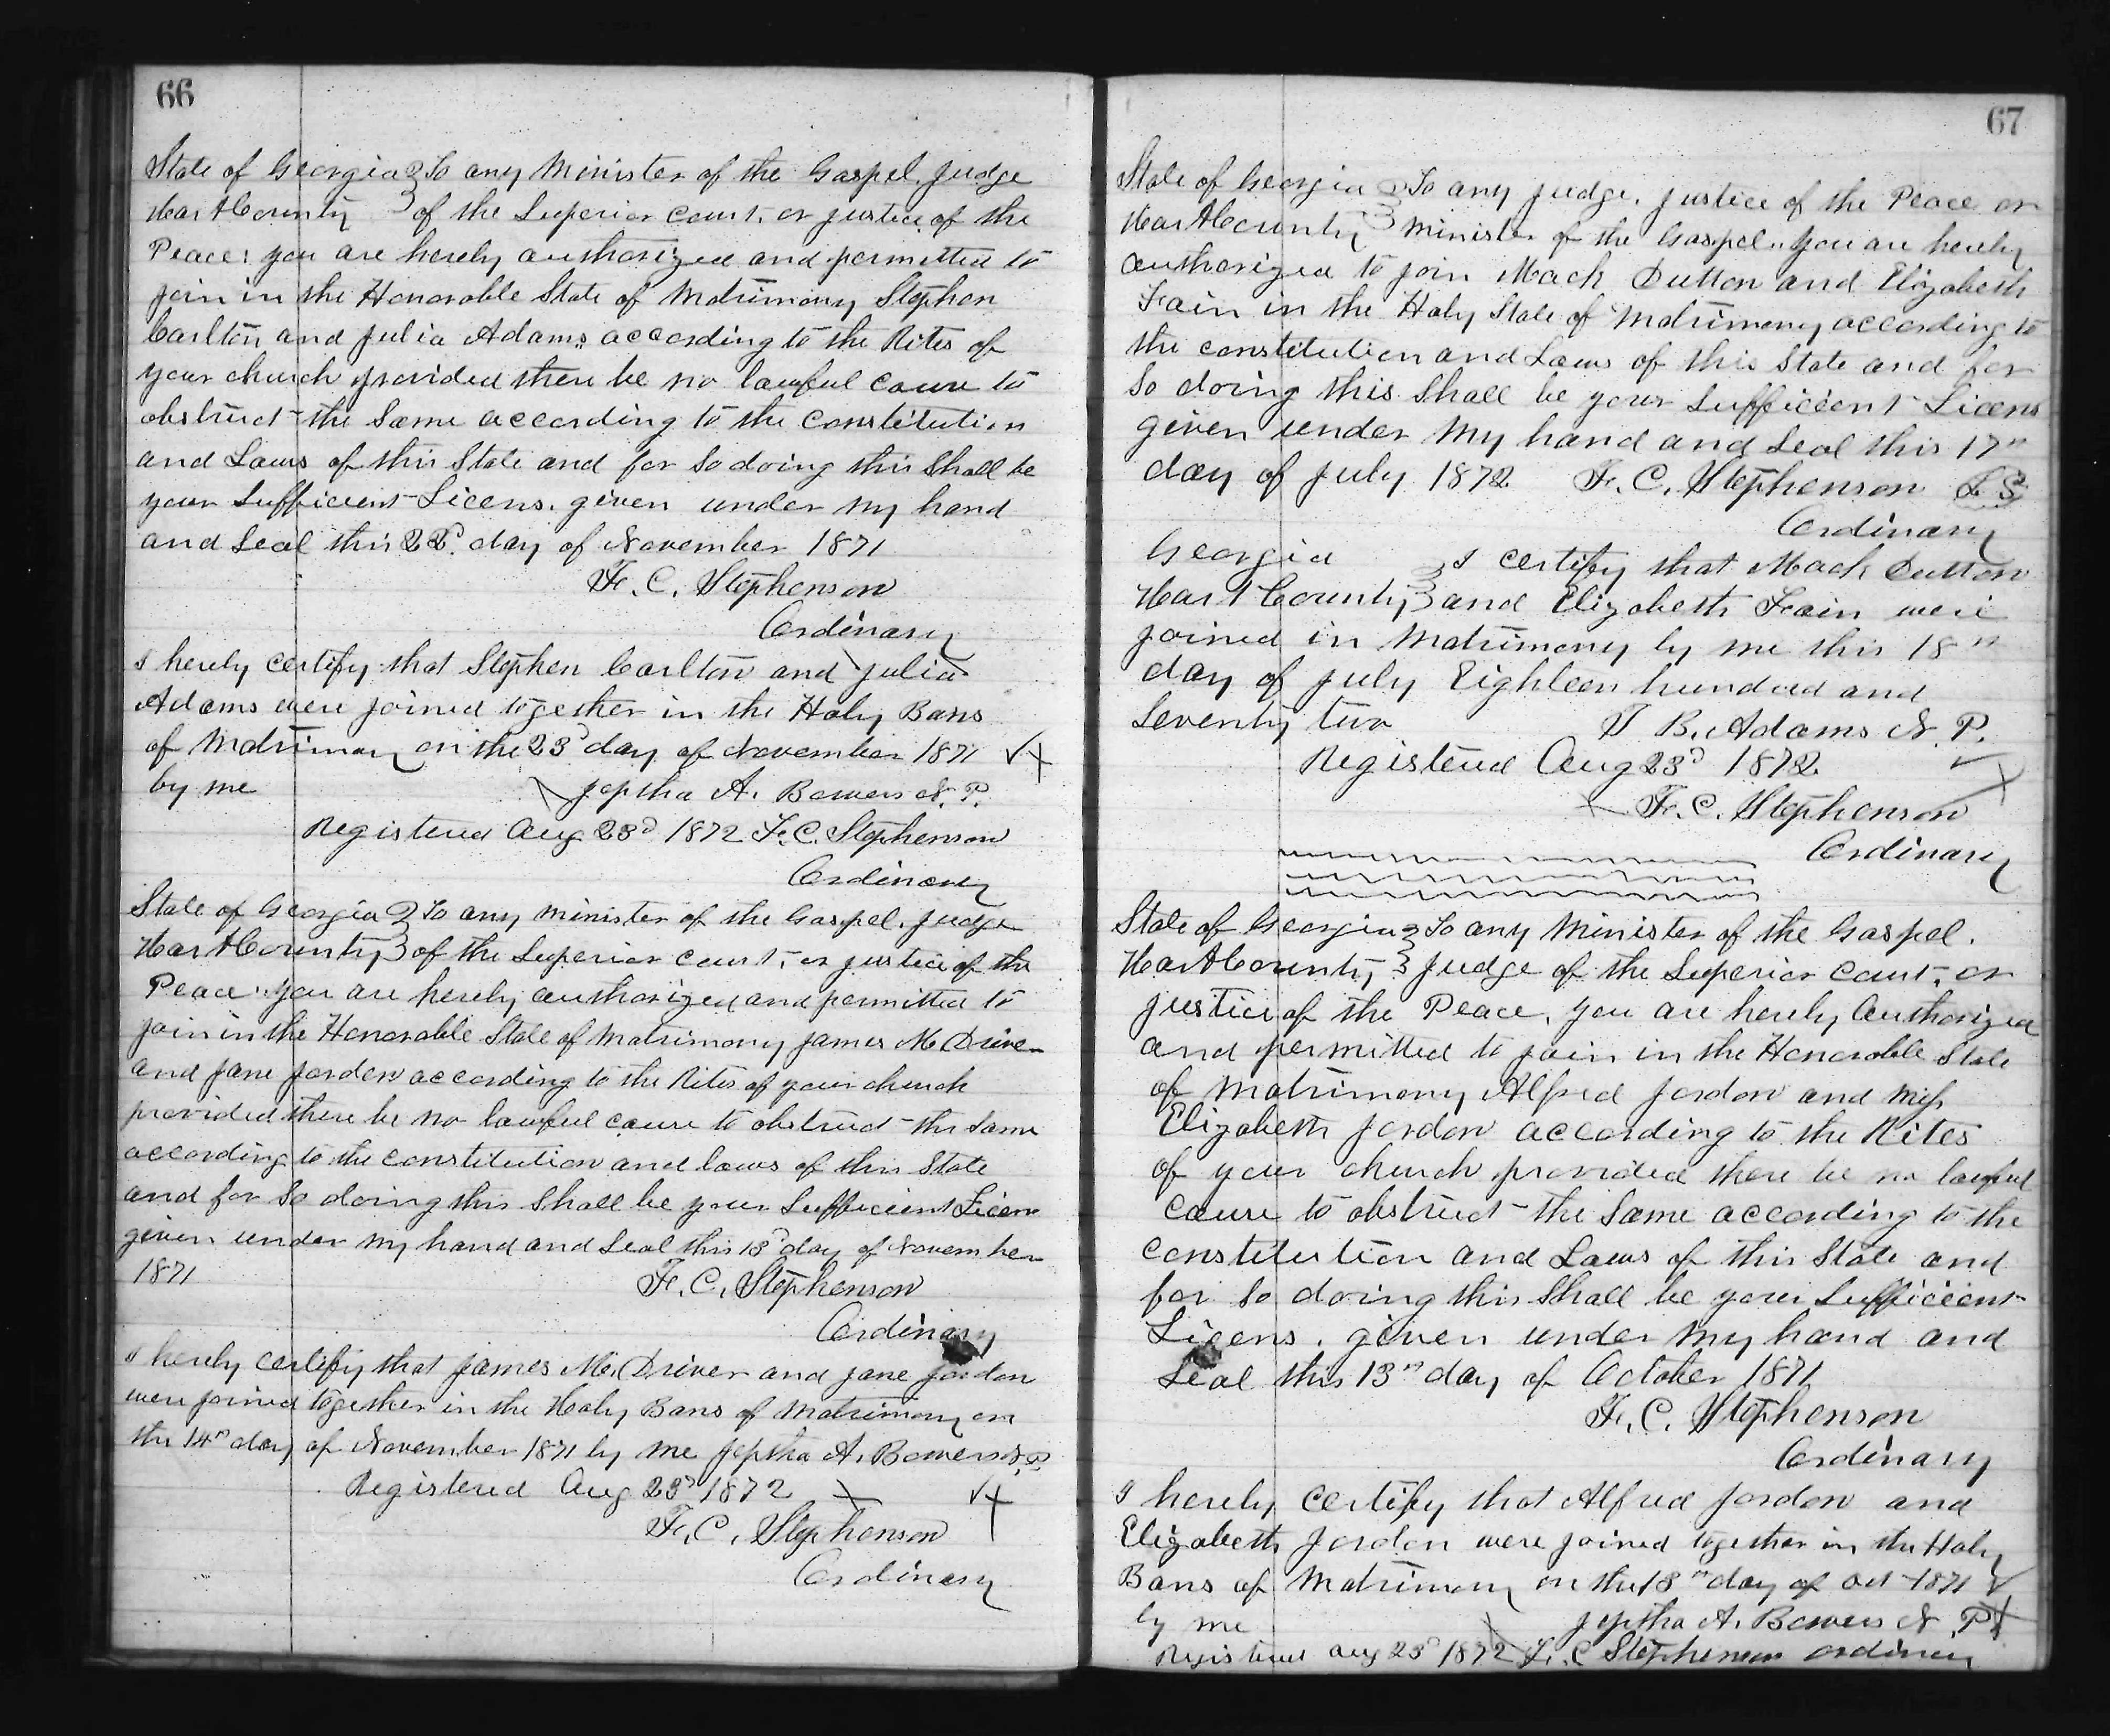 66
State of Georgia } To any Minister of the Gospel, Judge
Hart County } of the Superior Court, or justice of the
Peace: you are herely authorized and permitted to
join in the Honorable State of Matrimony Stephen
Carlton and Julia Adams according to the Rites of
your church provided there be no lawful cause to
obstruct the Same according to the Constitution
and Laws of this State and for So doing this Shall be
your Sufficient Licens. given under my hand
and Seal this 22d. day of November 1871
F. C. Stephenson
Ordinary
I herely certify that Stephen Carlton and Julia
Adams were joined together in the Holy Bans
of Matrimony on the 23d day of November 1871
by me Jeptha A. Bowers N. P.
Registered Aug 23d 1872 F. C. Stephenson
Ordinary
State of Georgia } To any minister of the Gospel, Judge
Hart County } of the Superior Court, or justice of the
Peace you are herely authorized and permitted to
join in the Honorable State of Matrimony James M. Driver
and Jane Jordon according to the Rites of your church
provided there be no lawful cause to obstruct the Same
according to the constitution and laws of this State
and for So doing this Shall be your Sufficient Licens
given under my hand and Seal this 13d day of November
1871 F. C. Stephenson
Ordinary
I herely certify that James M. Driver and Jane Jordon
were joined together in the Holy Bans of Matrimony on
the 14th day of November 1871 by me Jeptha A. Bowers N. P.
Registered Aug 23d 1872
F. C. Stephenson
Ordinary
67
State of Georgia } To any judge, justice of the Peace or
Hart County } Minister of the Gospel. you are herely
authorized to join Mack Dutton and Elizabeth
Fain in the Holy State of Matrimony according to
the constitution and Laws of this State and for
So doing this Shall be your Sufficient Licens
given under my hand and Seal this 17th
day of July 1872 F. C. Stephenson L S
Ordinary
Georgia } I certify that Mack Dutton
Hart County } and Elizabeth Fain were
joined in Matrimony by me this 18th
day of July Eighteen hundred and
Seventy two T B. Adams N. P.
Registered Aug 23d 1872
F. C. Stephenson
Ordinary
State of Georgia } To any Minister of the Gospel.
Hart County } Judge of the Superior Court, or
justice of the Peace. you are herely Authorized
and permitted to join in the Honorable State
of Matrimony Alfred Jordon and Miss
Elizabeth Jordon according to the Rites
of your church provided there be no lawful
Cause to obstruct the Same according to the
Constitution and Laws of this State and
for So doing this Shall be your Sufficient
Licens. given under my hand and
Seal this 13th day of October 1871
F. C. Stephenson
Ordinary
I herely certify that Alfred Jordon and
Elizabeth Jordon were joined together in the Holy
Bans of Matrimony on the 13th day of Oct 1871
by me Jeptha A. Bowers N. P.
Registered Aug 23d 1872 F. C Stephenson Ordinary